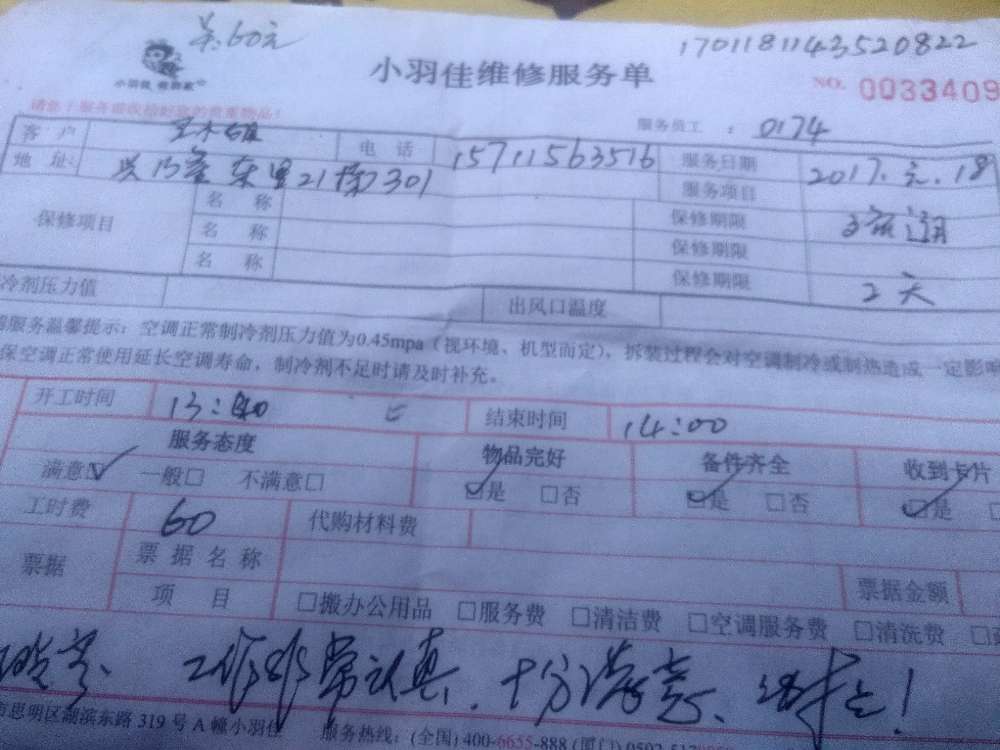 60元
1701181143520822
小羽佳维修服务单
NO. 0033409
服务员工: 0174
客户 电话 15711563516 服务日期 2017.元.18
地址: 东里21 301 服务项目
保修项目 名称 保修期限
名称 保修期限
名称 保修期限 2天
冷剂压力值 出风口温度
服务温馨提示: 空调正常制冷剂压力值为0.45mpa(视环境、机型而定), 拆装过程会对空调制冷或制热造成一定影响
保空调正常使用延长空调寿命, 制冷剂不足时请及时补充。
开工时间 13:40 结束时间 14:00
服务态度 物品完好 备件齐全 收到卡片
满意☑ 一般□ 不满意□ ☑是 □否 ☑是 □否 ☑是
工时费 60 代购材料费
票据 票据名称 票据金额
项目 □搬办公用品 □服务费 □清洁费 □空调服务费 □清洗费
工作非常认真、十分满意、
市思明区湖滨东路 319 号 A 幢小羽佳 服务热线: (全国) 400-6655-888 (厦门) 0592-